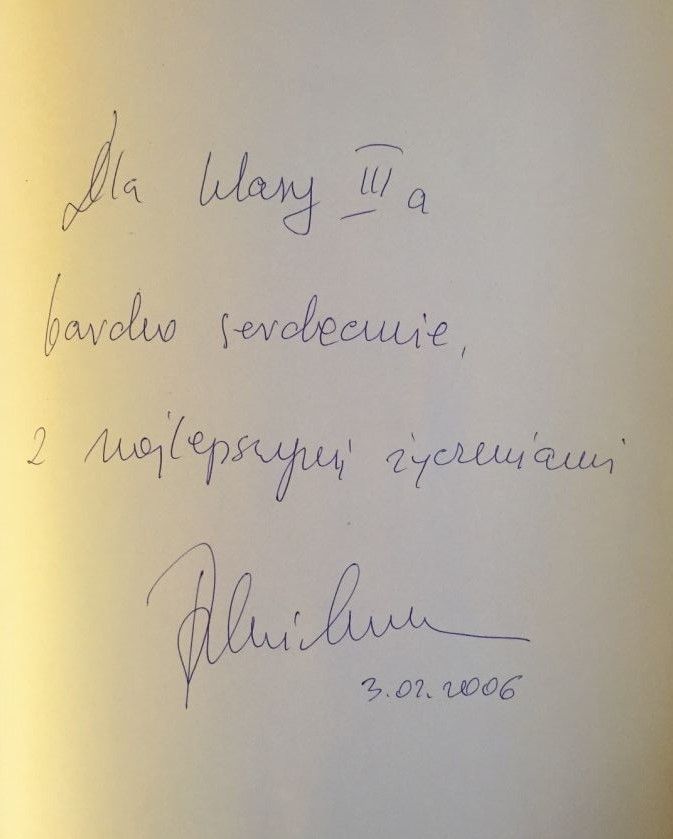 Dla klasy III a
bardzo serdecznie,
z najlepszymi życzeniami
3.02.2006